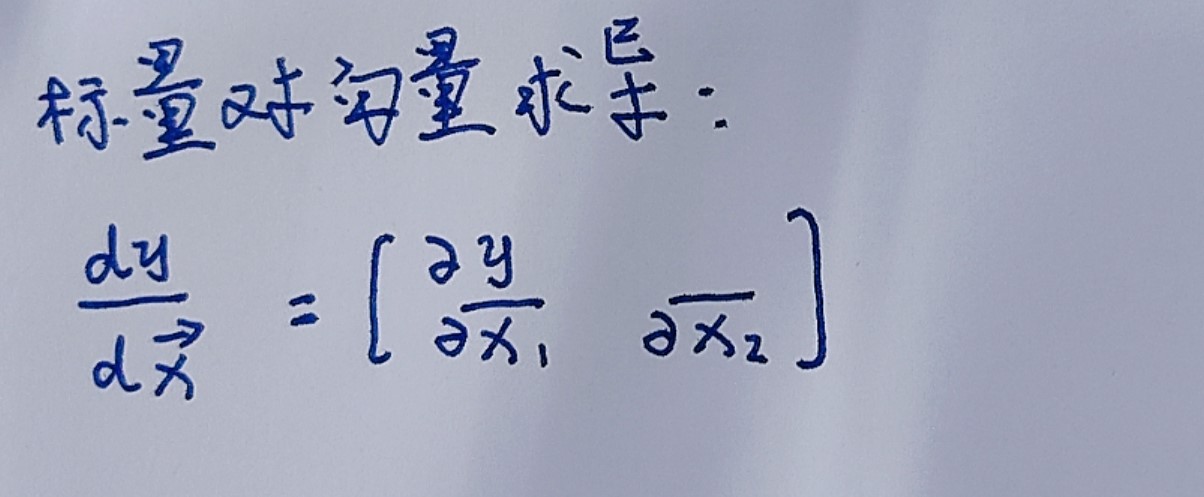 标量对向量求导:
dy/dx⃗ = [∂y/∂x₁  /∂x₂]